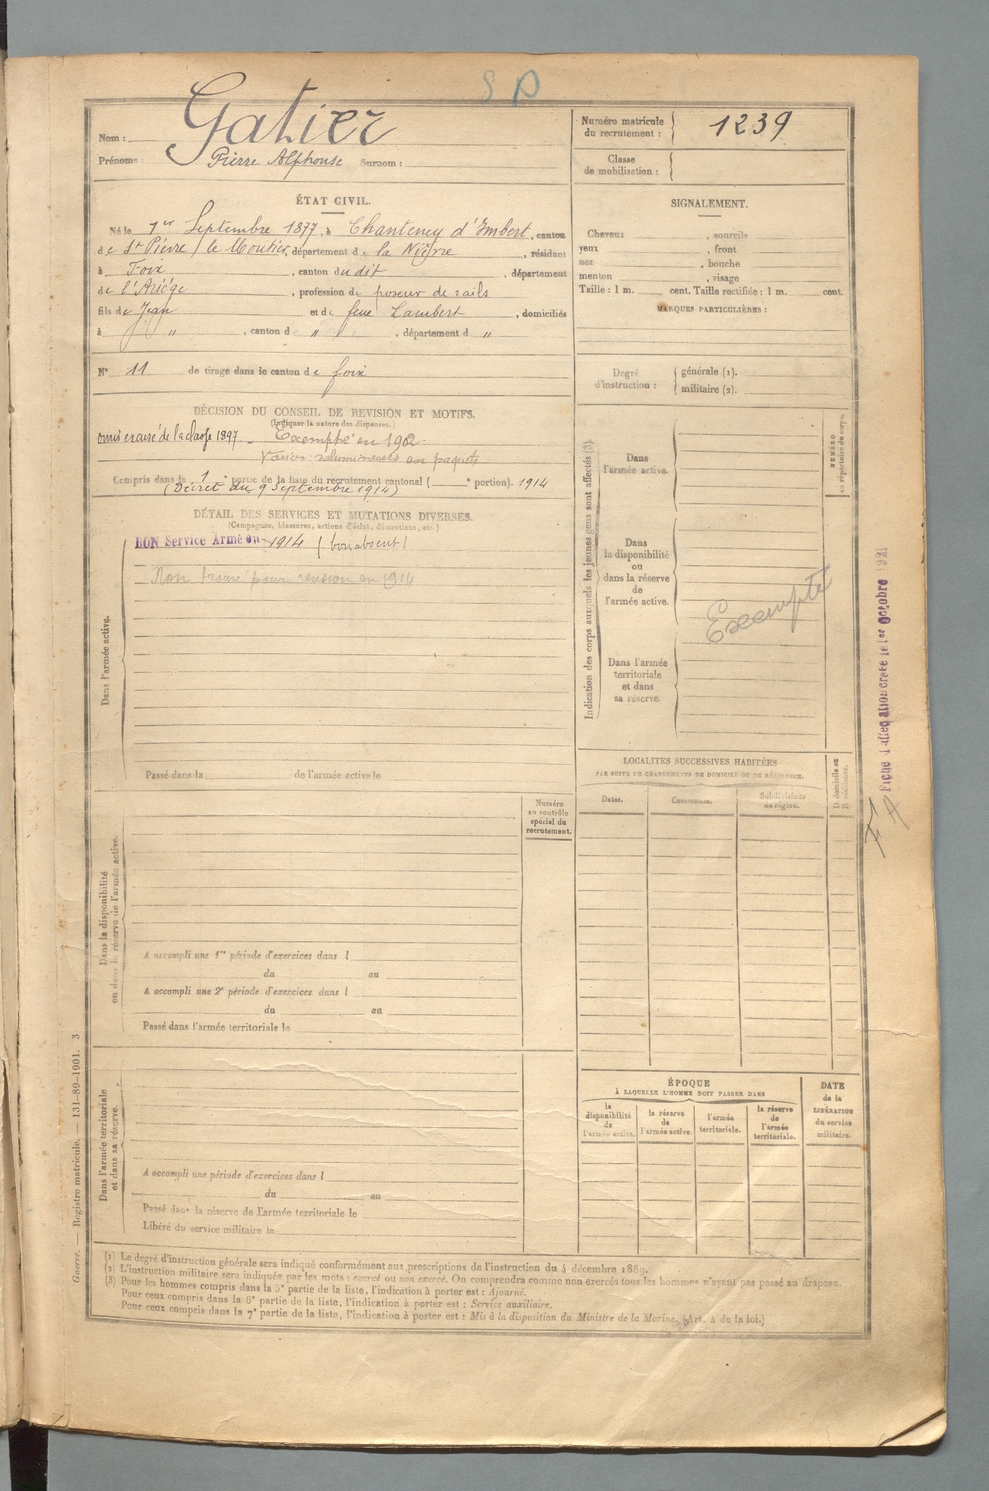 S D
Nom : Galier
Prénoms : Pierre Alphonse Surnom :
Numéro matricule du recrutement : 1239
Classe de mobilisation :
ÉTAT CIVIL.
Né le 1er Septembre 1877, à Chantenay d'Imbert, canton
de St Pierre le Moutier, département de la Nièvre, résidant
à Foix, canton du dit, département
de l'Ariège, profession de poseur de rails
fils de Jean et de feue Lambert, domiciliés
à " , canton d " , département d "
N° 11 de tirage dans le canton de foix
DÉCISION DU CONSEIL DE REVISION ET MOTIFS.
(Indiquer la nature des dispenses.)
omis excusé de la classe 1897 - Exempté en 1902.
Varices volumineuses en paquets
Compris dans la 1e partie de la liste du recrutement cantonal ( e portion). 1914
(Décret du 9 Septembre 1914)
DÉTAIL DES SERVICES ET MUTATIONS DIVERSES.
(Campagnes, blessures, actions d'éclat, décorations, etc.)
BON Service Armé en 1914 (bon absent)
Non trouvé pour revision en 1914
Dans l'armée active.
Passé dans la de l'armée active le
SIGNALEMENT.
Cheveux , sourcils
yeux , front
nez , bouche
menton , visage
Taille : 1 m. cent. Taille rectifiée : 1 m. cent.
MARQUES PARTICULIÈRES :
Degré d'instruction : générale (1).
militaire (2).
Indication des corps auxquels les jeunes gens sont affectés (3)
NUMÉRO au répertoire du corps.
Dans
l'armée active.
Dans
la disponibilité
ou
dans la réserve
de
l'armée active.
Exempté
Dans l'armée
territoriale
et dans
sa réserve.
Fiche d'affectation créée le 1er Octobre 1921
F A
LOCALITÉS SUCCESSIVES HABITÉES
PAR SUITE DE CHANGEMENTS DE DOMICILE OU DE RÉSIDENCE.
Dates. Communes. Subdivisions de région. D domicile ou R résidence.
Numéro
au contrôle
spécial du
recrutement.
Dans la disponibilité
ou dans la réserve de l'armée active.
A accompli une 1re période d'exercices dans l
du au
A accompli une 2e période d'exercices dans l
du au
Passé dans l'armée territoriale le
Dans l'armée territoriale
et dans sa réserve.
A accompli une période d'exercices dans l
du au
Passé dans la réserve de l'armée territoriale le
Libéré du service militaire le
ÉPOQUE
À LAQUELLE L'HOMME DOIT PASSER DANS
la disponibilité de l'armée active.
la réserve de l'armée active.
l'armée territoriale.
la réserve de l'armée territoriale.
DATE de la LIBÉRATION du service militaire.
(1) Le degré d'instruction générale sera indiqué conformément aux prescriptions de l'instruction du 4 décembre 1889.
(2) L'instruction militaire sera indiquée par les mots : exercé ou non exercé. On comprendra comme non exercés tous les hommes n'ayant pas passé au drapeau.
(3) Pour les hommes compris dans la 5e partie de la liste, l'indication à porter est : Ajourné.
Pour ceux compris dans la 6e partie de la liste, l'indication à porter est : Service auxiliaire.
Pour ceux compris dans la 7e partie de la liste, l'indication à porter est : Mis à la disposition du Ministre de la Marine. (Art. 4 de la loi.)
Guerre. — Registre matricule. 131-89-1901. 3